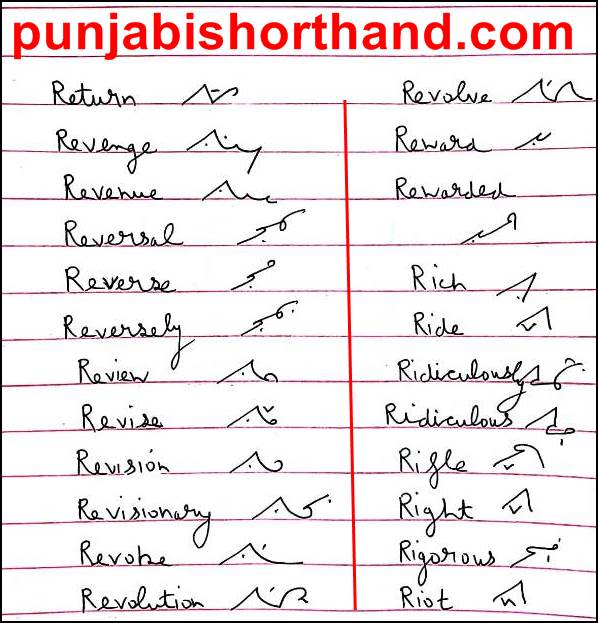 punjabishorthand.com
Return
Revenge
Revenue
Reversal
Reverse
Reversely
Review
Revise
Revision
Revisionary
Revoke
Revolution
Revolve
Reward
Rewarded
Rich
Ride
Ridiculously
Ridiculous
Rifle
Right
Rigorous
Riot